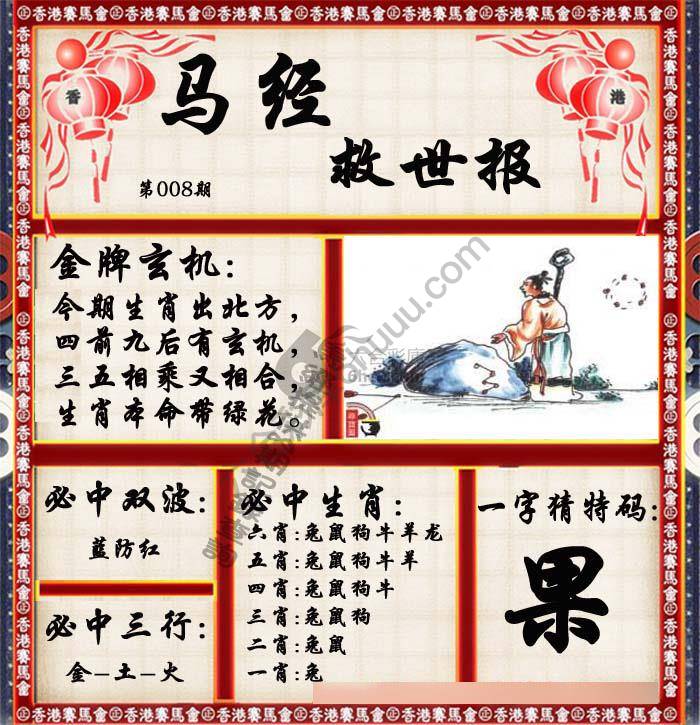 香港賽馬會
香
港
马经
救世报
第008期
金牌玄机:
今期生肖出北方，
四前九后有玄机，
三五相乘又相合，
生肖本命带绿花。
必中双波:
藍防红
必中三行:
金-土-火
必中生肖:
六肖:兔鼠狗牛羊龙
五肖:兔鼠狗牛羊
四肖:兔鼠狗牛
三肖:兔鼠狗
二肖:兔鼠
一肖:兔
一字猜特码:
果